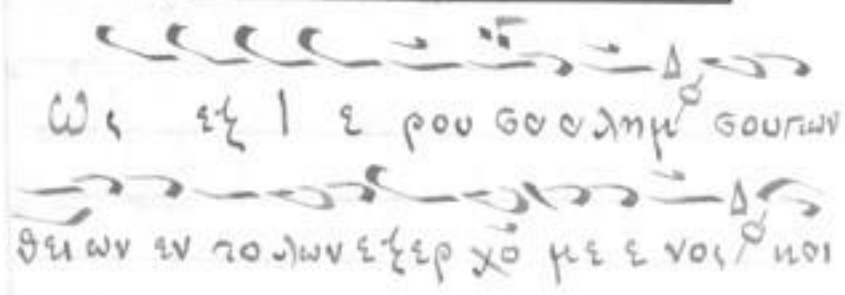 Ως εξ Ι ε ρου σα α λημ σου των
θει ων εν το λων εξερ χο με ε νος και